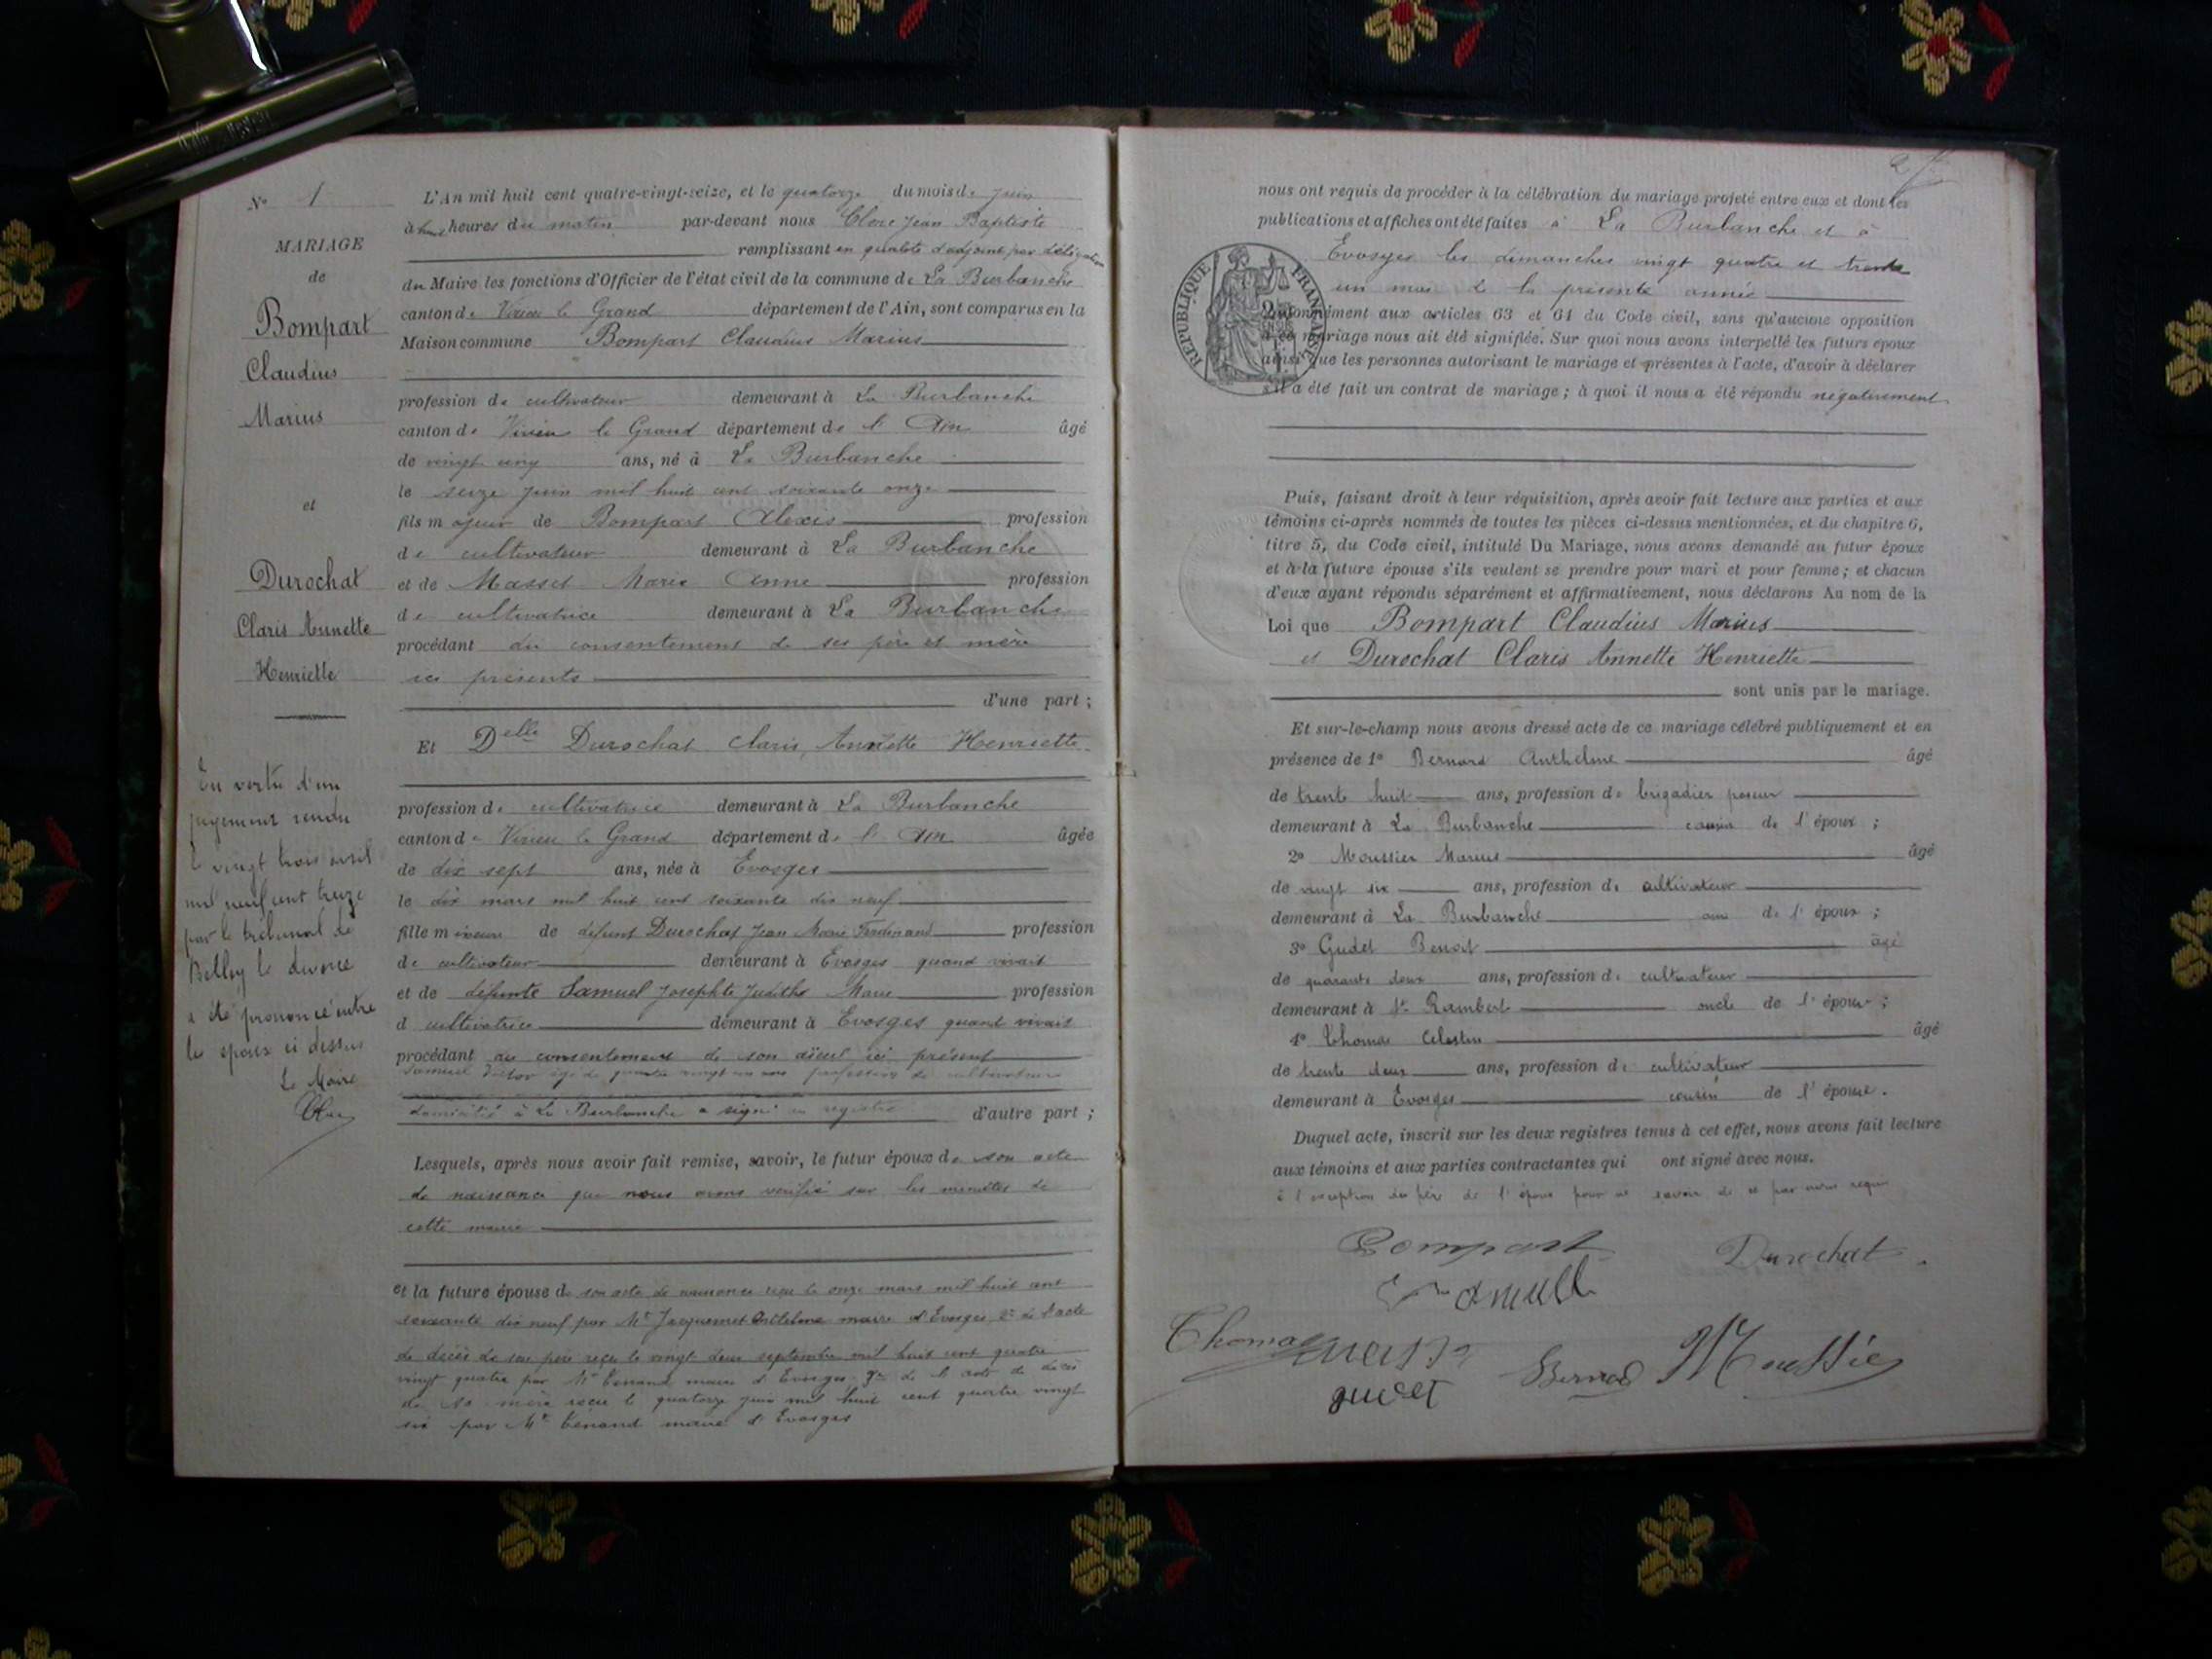 N° 1
MARIAGE
de
Bompart
Claudius
Marius
et
Durochat
Claris Annette
Henriette
En vertu d'un
jugement rendu
le vingt trois avril
mil neuf cent treize
par le tribunal de
Belley le divorce
a été prononcé entre
les époux ci dessus
Le Maire
L'An mil huit cent quatre-vingt-seize, et le quatorze du mois de juin
à huit heures du matin par-devant nous Jean Baptiste
remplissant en qualité d'adjoint par délégation
du Maire les fonctions d'Officier de l'état civil de la commune de La Burbanche
canton de Virieu le Grand département de l'Ain, sont comparus en la
Maison commune Bompart Claudius Marius
profession de cultivateur demeurant à La Burbanche
canton de Virieu le Grand département de l'Ain âgé
de vingt cinq ans, né à La Burbanche
le seize juin mil huit cent soixante onze
fils majeur de Bompart Alexis profession
de cultivateur demeurant à La Burbanche
et de Masset Marie Anne profession
de cultivatrice demeurant à La Burbanche
procédant du consentement de ses père et mère
ici présents
d'une part ;
Et Delle Durochat Claris, Annette Henriette
profession de cultivatrice demeurant à La Burbanche
canton de Virieu le Grand département de l'Ain âgée
de dix sept ans, née à Evosges
le dix mars mil huit cent soixante dix neuf
fille mineure de défunt Durochat Jean Marie Ferdinand profession
de cultivateur demeurant à Evosges quand vivait
et de défunte Samuel Josephte Judithe Marie profession
d cultivatrice demeurant à Evosges quand vivait
procédant du consentement de son aïeul ici présent
Samuel Victor âgé de quatre vingt un ans profession de cultivateur
domicilié à La Burbanche a signé au registre d'autre part ;
Lesquels, après nous avoir fait remise, savoir, le futur époux de son acte
de naissance que nous avons vérifié sur les minutes de
cette mairie
et la future épouse de son acte de naissance reçu le onze mars mil huit cent
soixante dix neuf par Mr Jacquemet Anthelme maire d'Evosges, 2° de l'acte
de décès de son père reçu le vingt deux septembre mil huit cent quatre
vingt quatre par Mr Tenand maire d'Evosges, 3° de l'acte de décès
de sa mère reçu le quatorze juin mil huit cent quatre vingt
six par Mr Tenand maire d'Evosges
nous ont requis de procéder à la célébration du mariage projeté entre eux et dont les
publications et affiches ont été faites à La Burbanche et à
Evosges les dimanches vingt quatre et trente
un mai de la présente année
RÉPUBLIQUE FRANÇAISE
conformément aux articles 63 et 64 du Code civil, sans qu'aucune opposition
à ce mariage nous ait été signifiée. Sur quoi nous avons interpellé les futurs époux
ainsi que les personnes autorisant le mariage et présentes à l'acte, d'avoir à déclarer
s'il a été fait un contrat de mariage ; à quoi il nous a été répondu négativement
Puis, faisant droit à leur réquisition, après avoir fait lecture aux parties et aux
témoins ci-après nommés de toutes les pièces ci-dessus mentionnées, et du chapitre 6,
titre 5, du Code civil, intitulé Du Mariage, nous avons demandé au futur époux
et à la future épouse s'ils veulent se prendre pour mari et pour femme ; et chacun
d'eux ayant répondu séparément et affirmativement, nous déclarons Au nom de la
Loi que Bompart Claudius Marius
et Durochat Claris Annette Henriette
sont unis par le mariage.
Et sur-le-champ nous avons dressé acte de ce mariage célébré publiquement et en
présence de 1° Bernard Anthelme âgé
de trente huit ans, profession de brigadier poseur
demeurant à La Burbanche cousin de l'époux ;
2° Moussier Marius âgé
de vingt six ans, profession de cultivateur
demeurant à La Burbanche ami de l'époux ;
3° Gudet Benoit âgé
de quarante deux ans, profession de cultivateur
demeurant à St Rambert oncle de l'époux ;
4° Thomas Celestin âgé
de trente deux ans, profession de cultivateur
demeurant à Evosges cousin de l'épouse.
Duquel acte, inscrit sur les deux registres tenus à cet effet, nous avons fait lecture
aux témoins et aux parties contractantes qui ont signé avec nous.
à l'exception du père de l'époux pour ne savoir de ce par nous requis
Bompart
Durochat
Samuel
Thomas
Bernard
Moussier